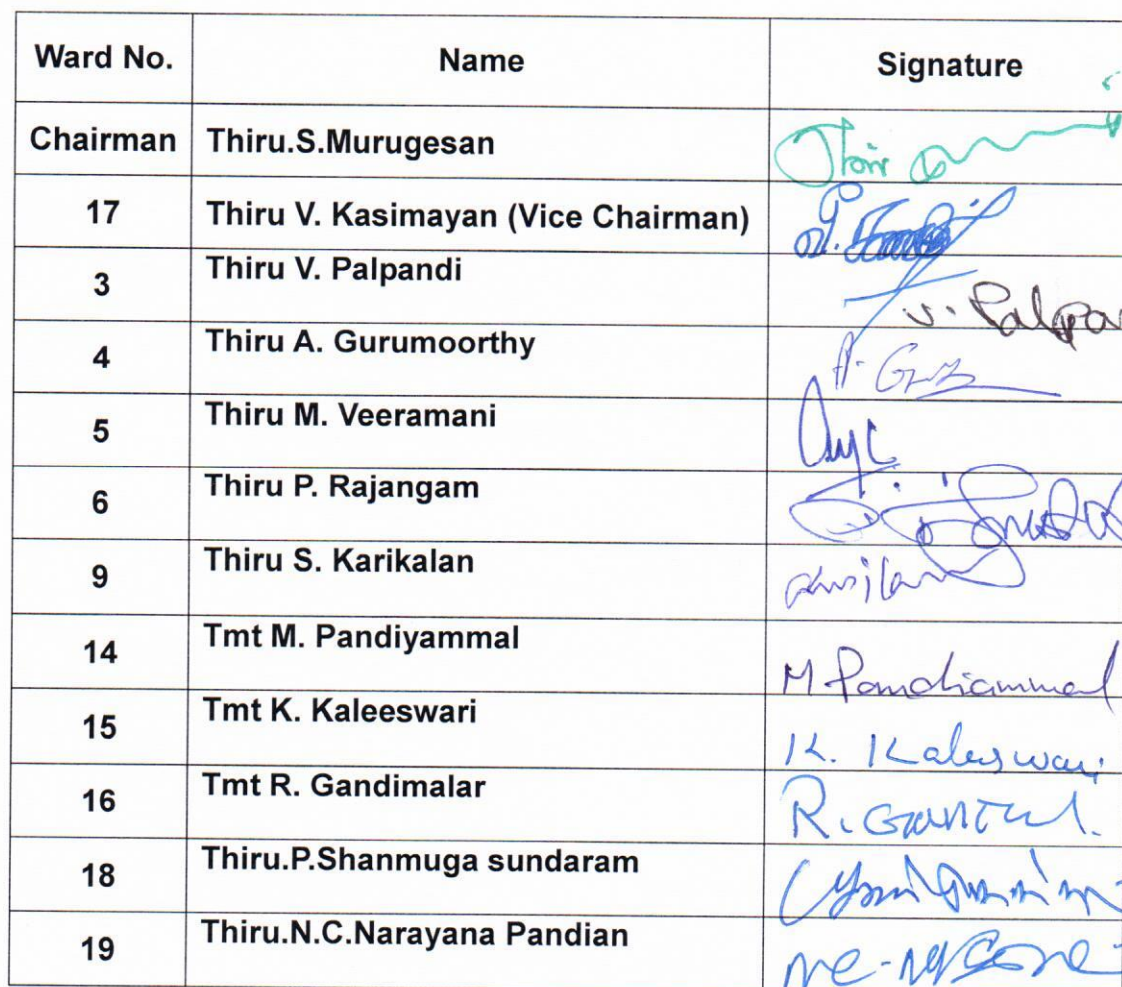 Ward No. Name Signature
Chairman Thiru.S.Murugesan
17 Thiru V. Kasimayan (Vice Chairman)
3 Thiru V. Palpandi V. Palpan
4 Thiru A. Gurumoorthy
5 Thiru M. Veeramani
6 Thiru P. Rajangam
9 Thiru S. Karikalan
14 Tmt M. Pandiyammal M Pandiammal
15 Tmt K. Kaleeswari K. Kaleswari
16 Tmt R. Gandimalar
18 Thiru.P.Shanmuga sundaram
19 Thiru.N.C.Narayana Pandian